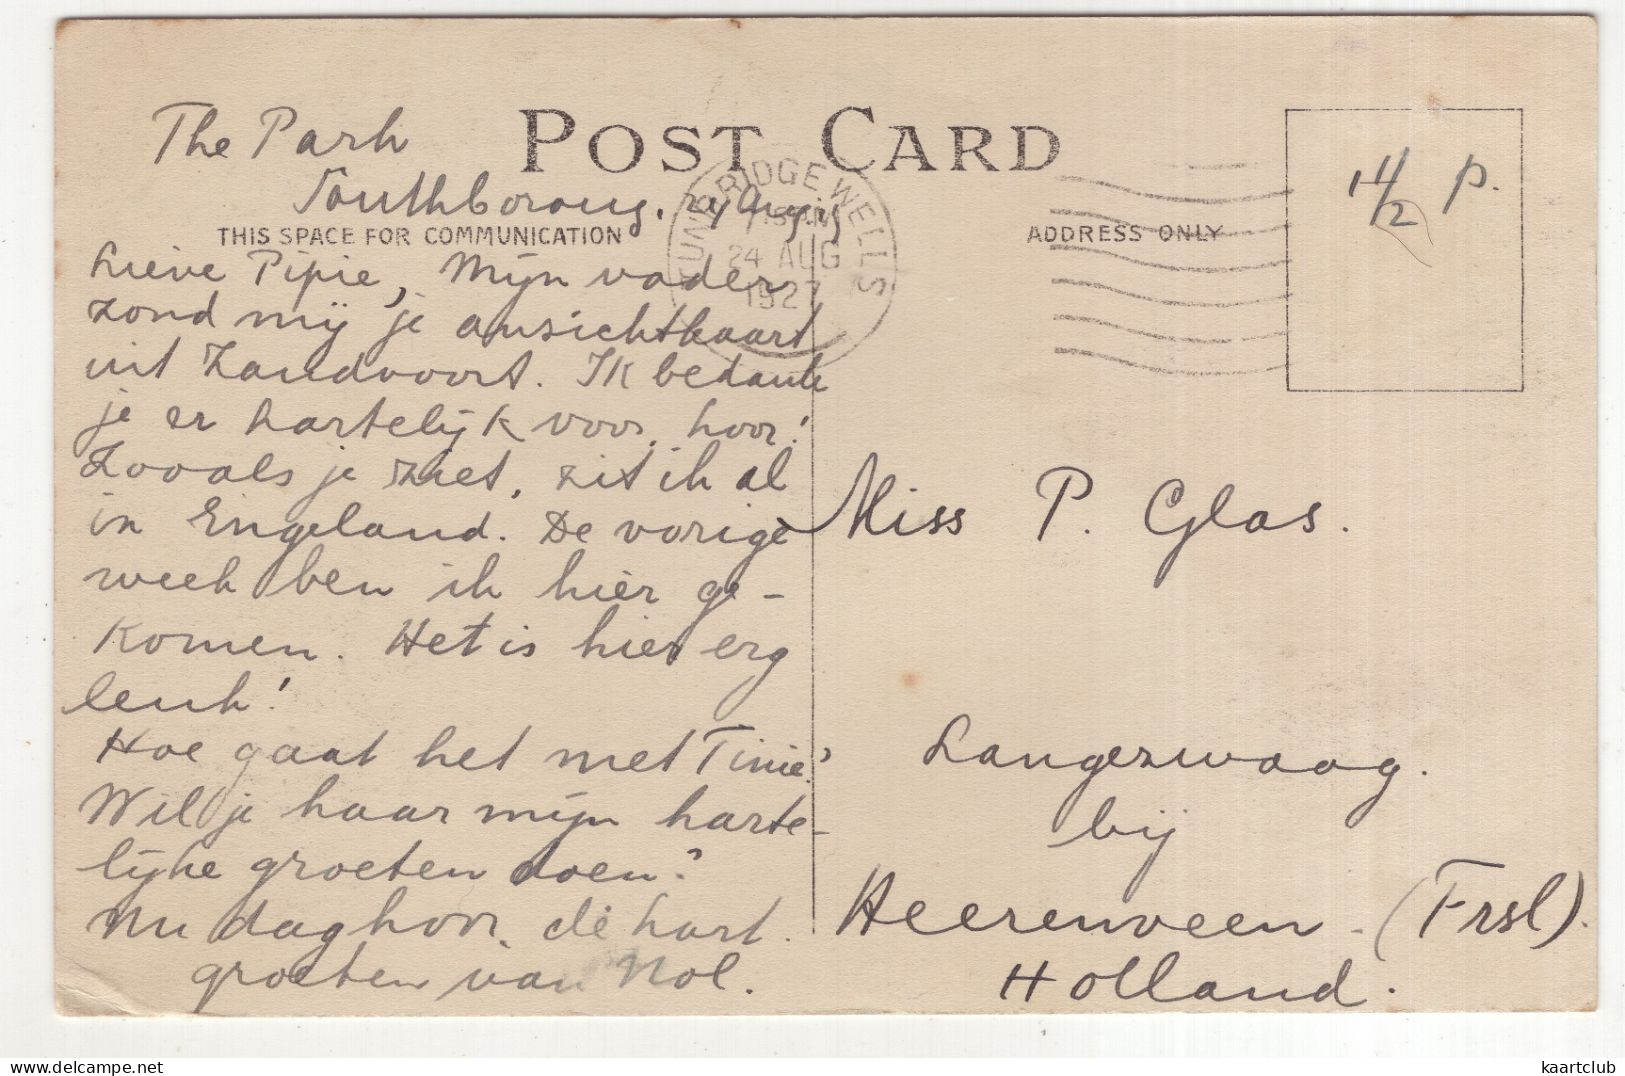 The Park
POST CARD
Southboroug.
THIS SPACE FOR COMMUNICATION
TUNBRIDGE WELLS
24 AUG
1927
Lieve Pipie, Mijn vader
zond mij je ansichtkaart
uit Zandvoort. Ik bedank
je er hartelijk voor, hoor!
Zooals je ziet, zit ik al
in Engeland. De vorige
week ben ik hier ge-
komen. Het is hier erg
leuk!
Hoe gaat het met Tinie?
Wil je haar mijn harte-
lijke groeten doen?
Nu dag hoor, de hart.
groeten van Nol.
ADDRESS ONLY
1 1/2 p.
Miss P. Glas.
Langezwaag.
bij
Heerenveen. (Frsl).
Holland.
kaartclub